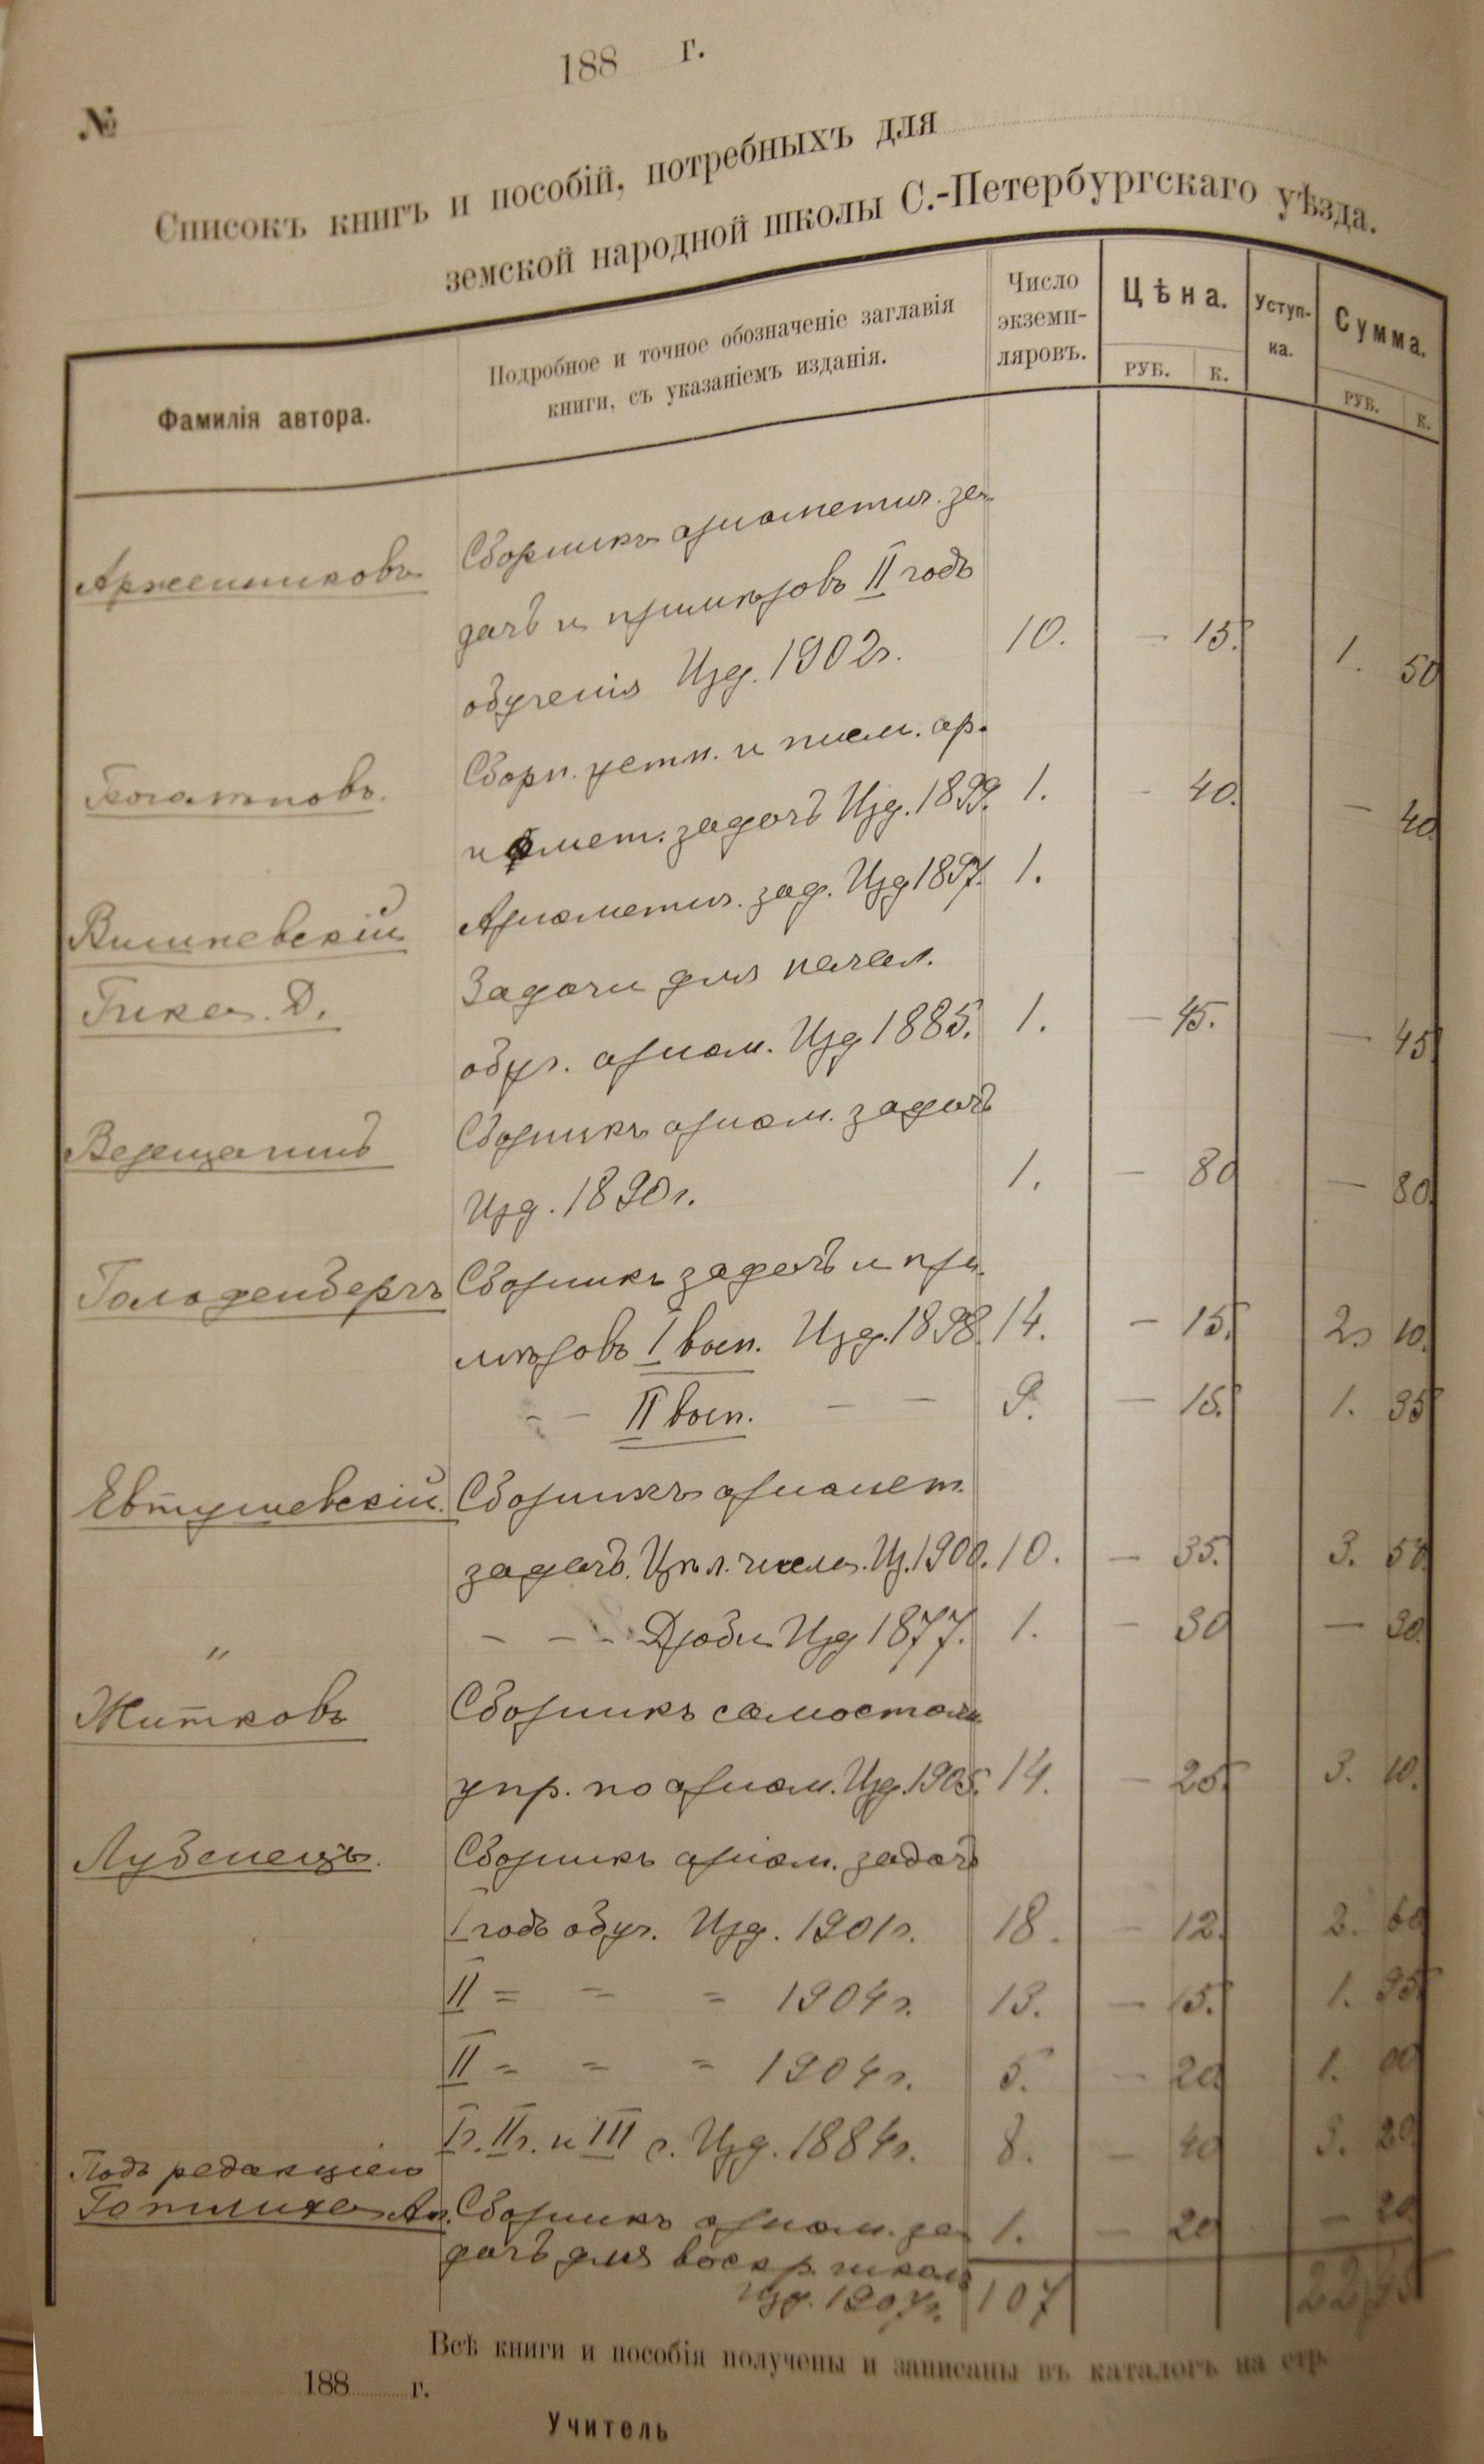 188 г.
№
Списокъ книгъ и пособій, потребныхъ для
земской народной школы С.-Петербургскаго уѣзда.
Фамилія автора.
Подробное и точное обозначеніе заглавія
книги, съ указаніемъ изданія.
Число
экземп-
ляровъ.
Цѣна.
РУБ. К.
Уступ-
ка.
Сумма.
РУБ. К.
Арженниковъ Сборникъ ариѳметич. за-
дачъ и примѣровъ II годъ
обученія Изд. 1902г. 10. — 15. 1. 50
Богатповъ. Сборн. устн. и письм. ар.
иѳмет. задачъ Изд. 1899. 1. - 40. — 40.
Вишневскій Ариѳметич. зад. Изд 1897. 1.
Гика. Д. Задачи для начал.
обуч. ариѳм. Изд 1885. 1. — 45. — 45
Верещагинъ Сборникъ ариѳм. задачъ
Изд. 1890г. 1. — 80 — 80.
Гольденбергъ Сборникъ задачъ и при
мѣровъ I вып. Изд. 1898. 14. — 15. 2. 10.
- — II вып. — — 9. — 15. 1. 35
Евтушевскій. Сборникъ ариѳмет.
задачъ. Цѣл. числа. Из. 1900. 10. — 35. 3. 50.
" — — - Дроби Изд 1877. 1. — 30 — 30.
Житковъ Сборникъ самостоят.
упр. по ариѳм. Изд. 1905. 14. — 25. 3. 10.
Лубенецъ. Сборникъ ариѳм. задачъ
I годъ обуч. Изд. 1901г. 18. — 12. 2. 60
II = = = 1904г. 13. — 15. 1. 95.
II = = = 1904г. 5. — 20. 1. 00
Iг. IIг. и III г. Изд. 1884г. 8. — 40 3. 20.
Подъ редакціею
Сборникъ ариѳм. за 1. — 20 — 20
дачъ для воскр. школъ
Изд. 1907г. 107
Всѣ книги и пособія получены и записаны въ каталогъ на стр.
188 г.
Учитель